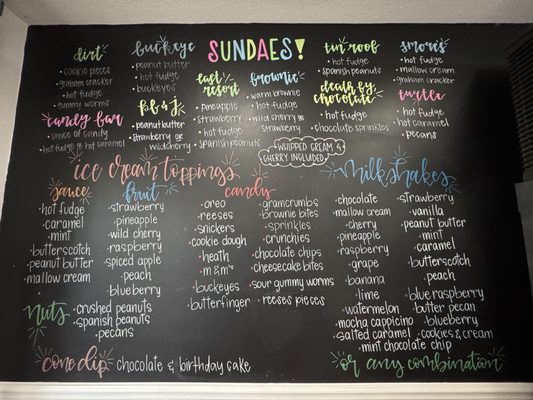 SUNDAES!
dirt
• COOKIE PIECES
• graham cracker
• hot fudge
• gummy worms
buckeye
• peanut butter
• hot fudge
• buckeyes
east resort
• pineapple
• strawberry
• hot fudge
• Spanish peanuts
brownie
• warm brownie
• hot fudge
• wild cherry OR strawberry
tin roof
• hot fudge
• Spanish peanuts
s'mores
• hot fudge
• mallow cream
• graham cracker
candy bar
• choice of candy
• hot fudge or hot caramel
pb & j
• peanut butter
• Strawberry OR
wildcherry
death by
chocolate
• hot fudge
• chocolate sprinkles
turtle
• hot fudge
• hot caramel
• pecans
WHIPPED CREAM &
CHERRY INCLUDED
ice cream toppings
sauce
• hot fudge
• caramel
• mint
• butterscotch
• peanut butter
• mallow cream
fruit
• strawberry
• pineapple
• wild cherry
• raspberry
• spiced apple
• peach
• blueberry
candy
• oreo
• reeses
• snickers
• cookie dough
• heath
• m&m's
• buckeyes
• butterfinger
• gramcrumbs
• brownie bites
• sprinkles
• crunchies
• chocolate chips
• cheesecake bites
• sour gummy worms
• reeses pieces
nuts
• crushed peanuts
• spanish peanuts
• pecans
cone dip
chocolate & birthday cake
Milkshakes
• chocolate
• mallow cream
• cherry
• pineapple
• raspberry
• grape
• banana
• lime
• watermelon
• mocha cappicino
• salted caramel
• mint chocolate chip
• strawberry
• vanilla
• peanut butter
• mint
• caramel
• butterscotch
• peach
• blue raspberry
• butter pecan
• blueberry
• cookies & cream
or any combination